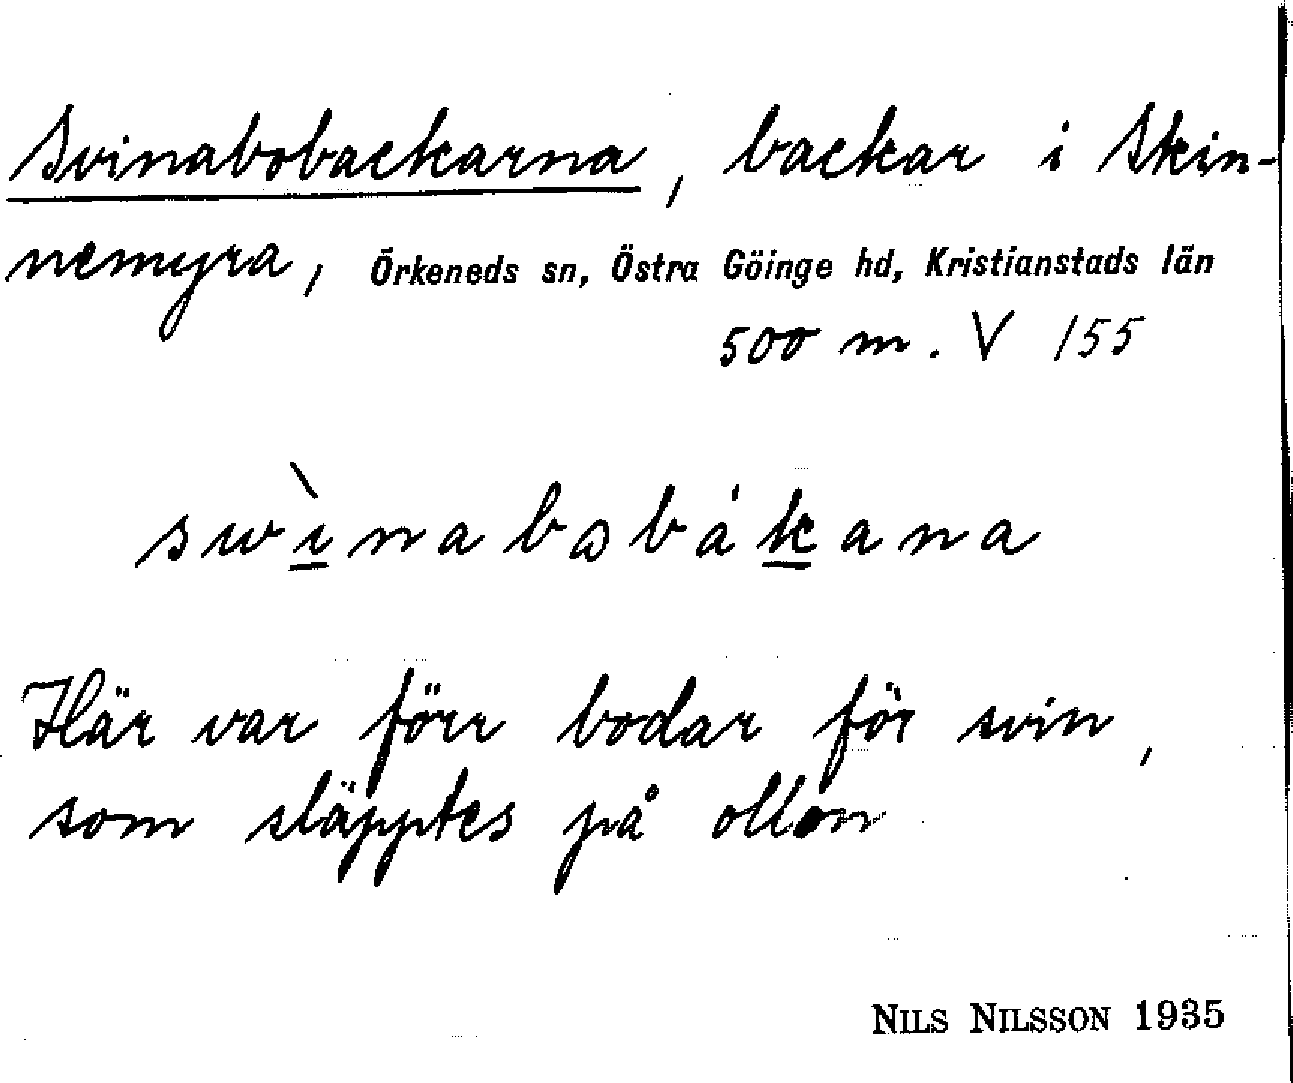 Svinabobackarna, backar i Skin-
nemyra, Örkeneds sn, Östra Göinge hd, Kristianstads län
500 m. V 155
swı̱̀nabɷbàḵana
Här var förr bodar för svin,
som släpptes på ollon
NILS NILSSON 1935